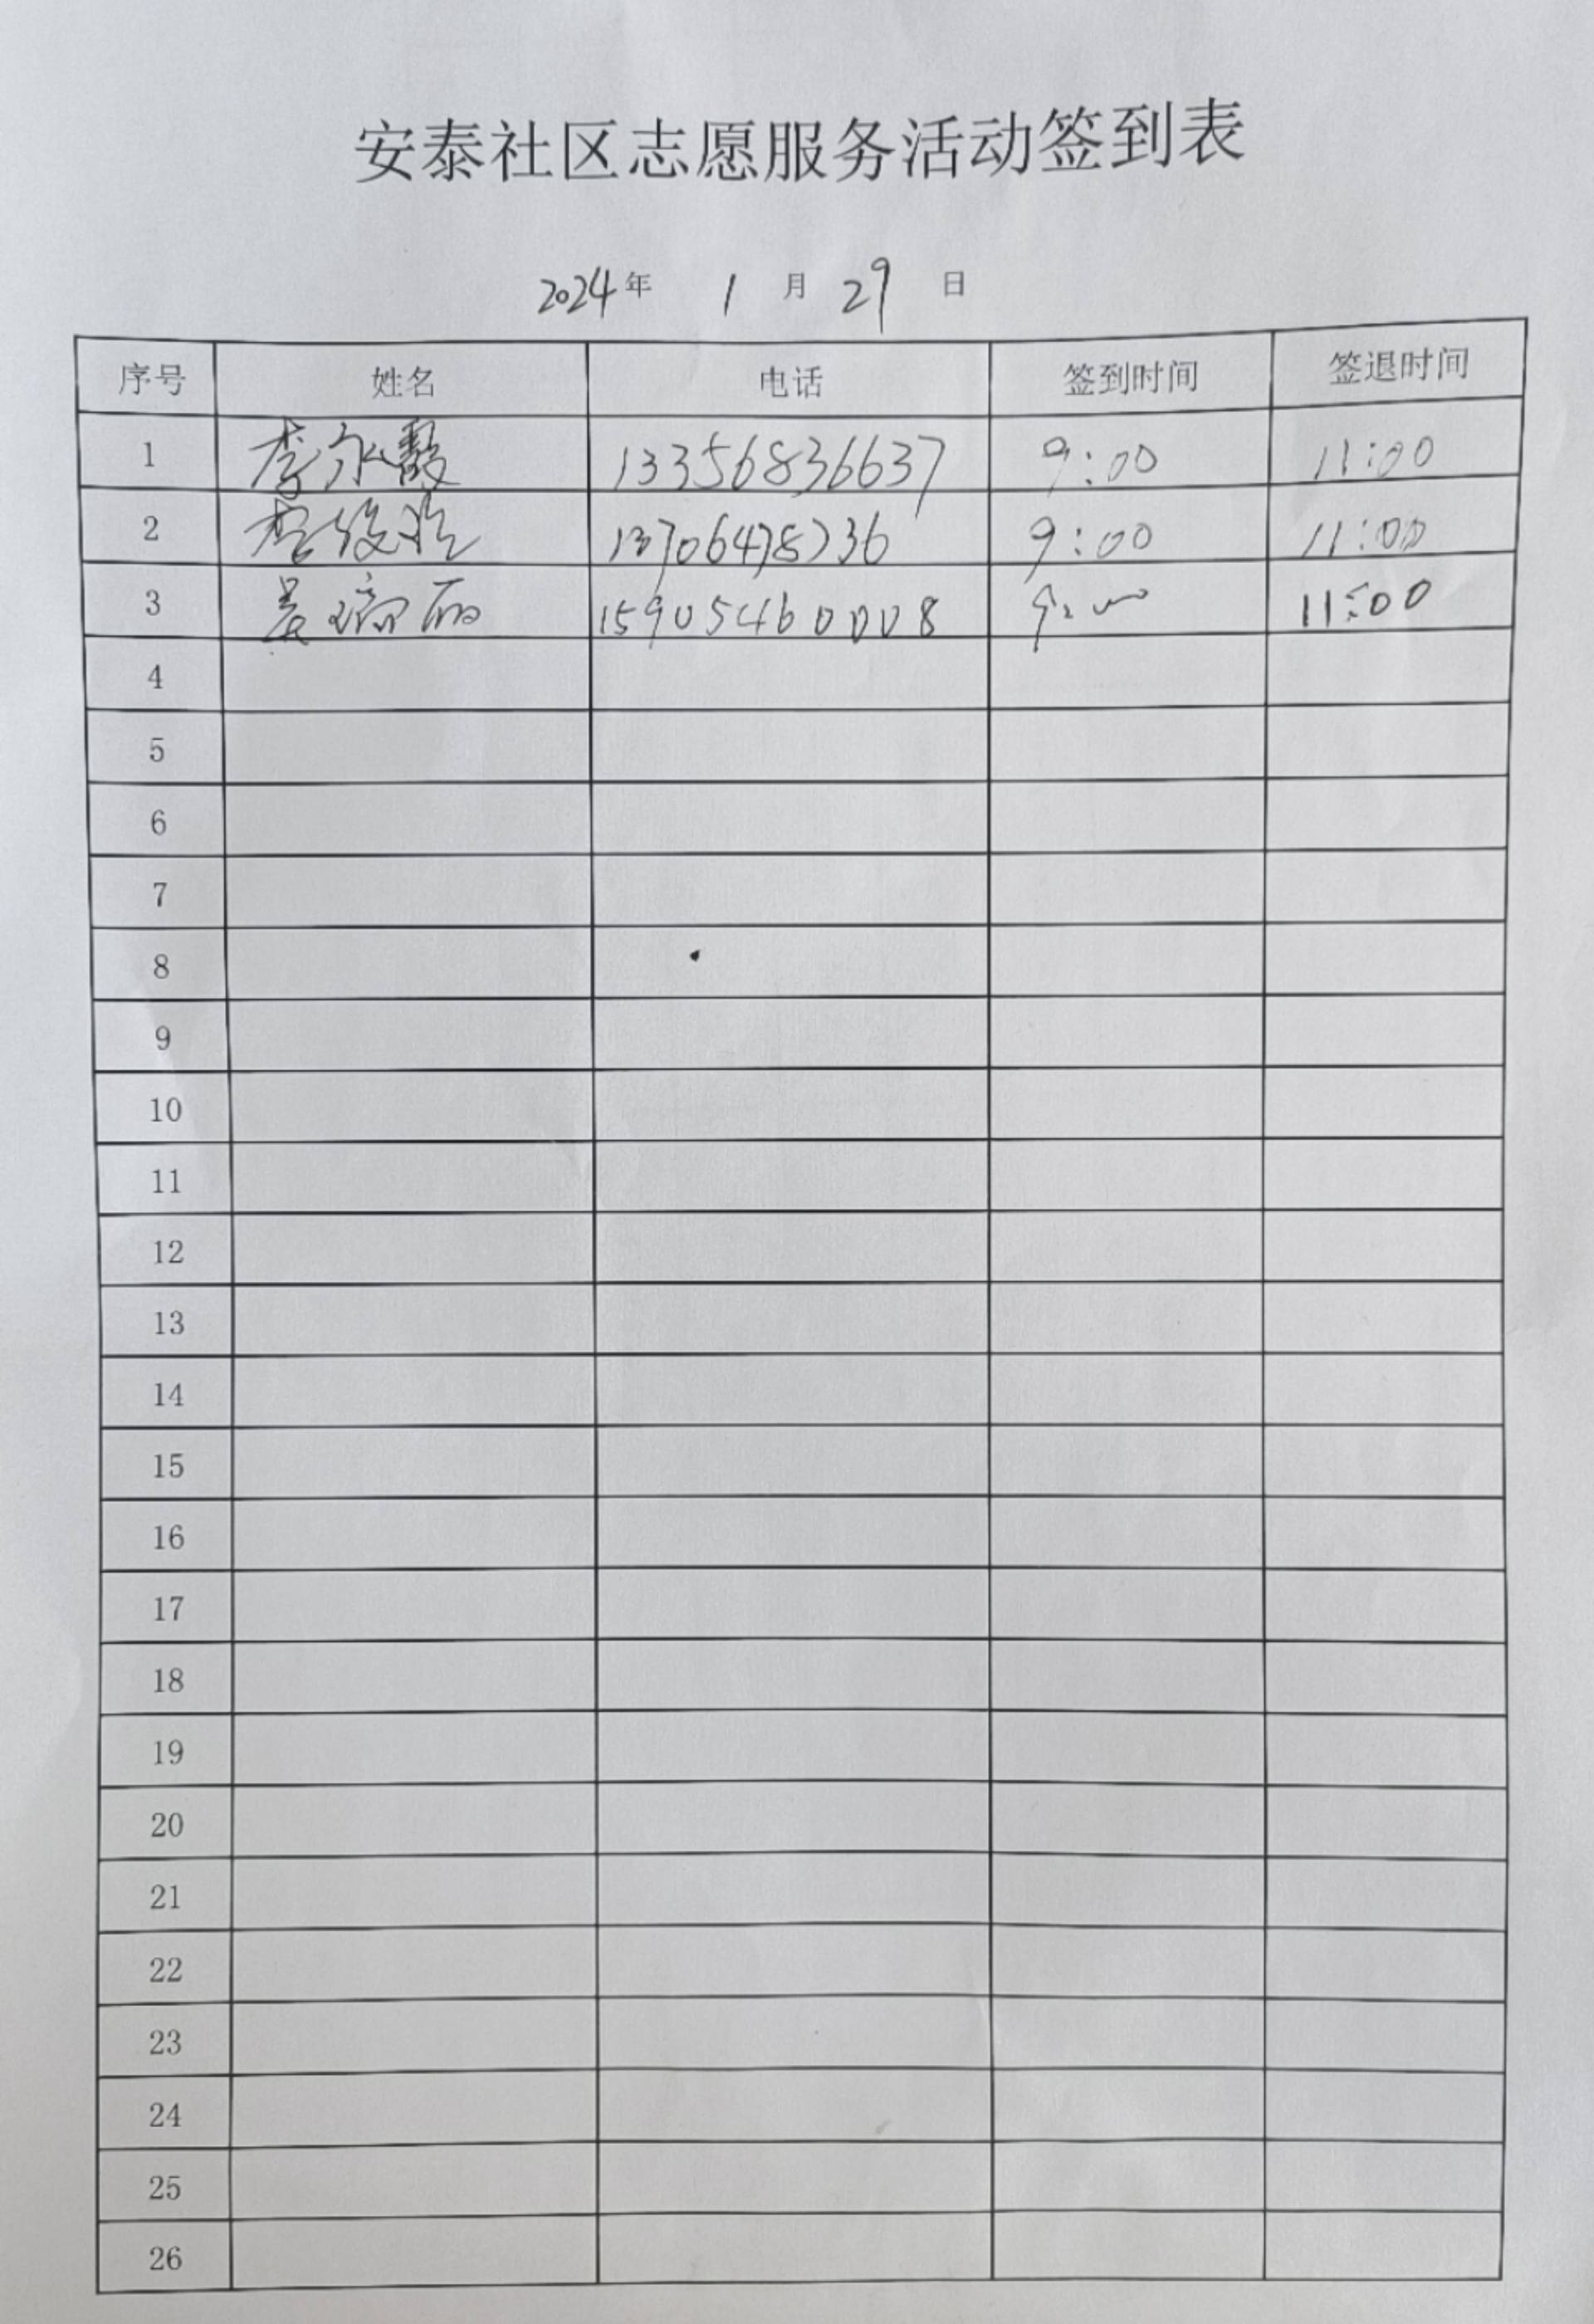 安泰社区志愿服务活动签到表
2024年 1 月 29 日
序号 姓名 电话 签到时间 签退时间
1 李永 13356836637 9:00 11:00
2 李俊玲 13706478736 9:00 11:00
3 姜瑞丽 15905460008 9:00 11:00
4
5
6
7
8
9
10
11
12
13
14
15
16
17
18
19
20
21
22
23
24
25
26